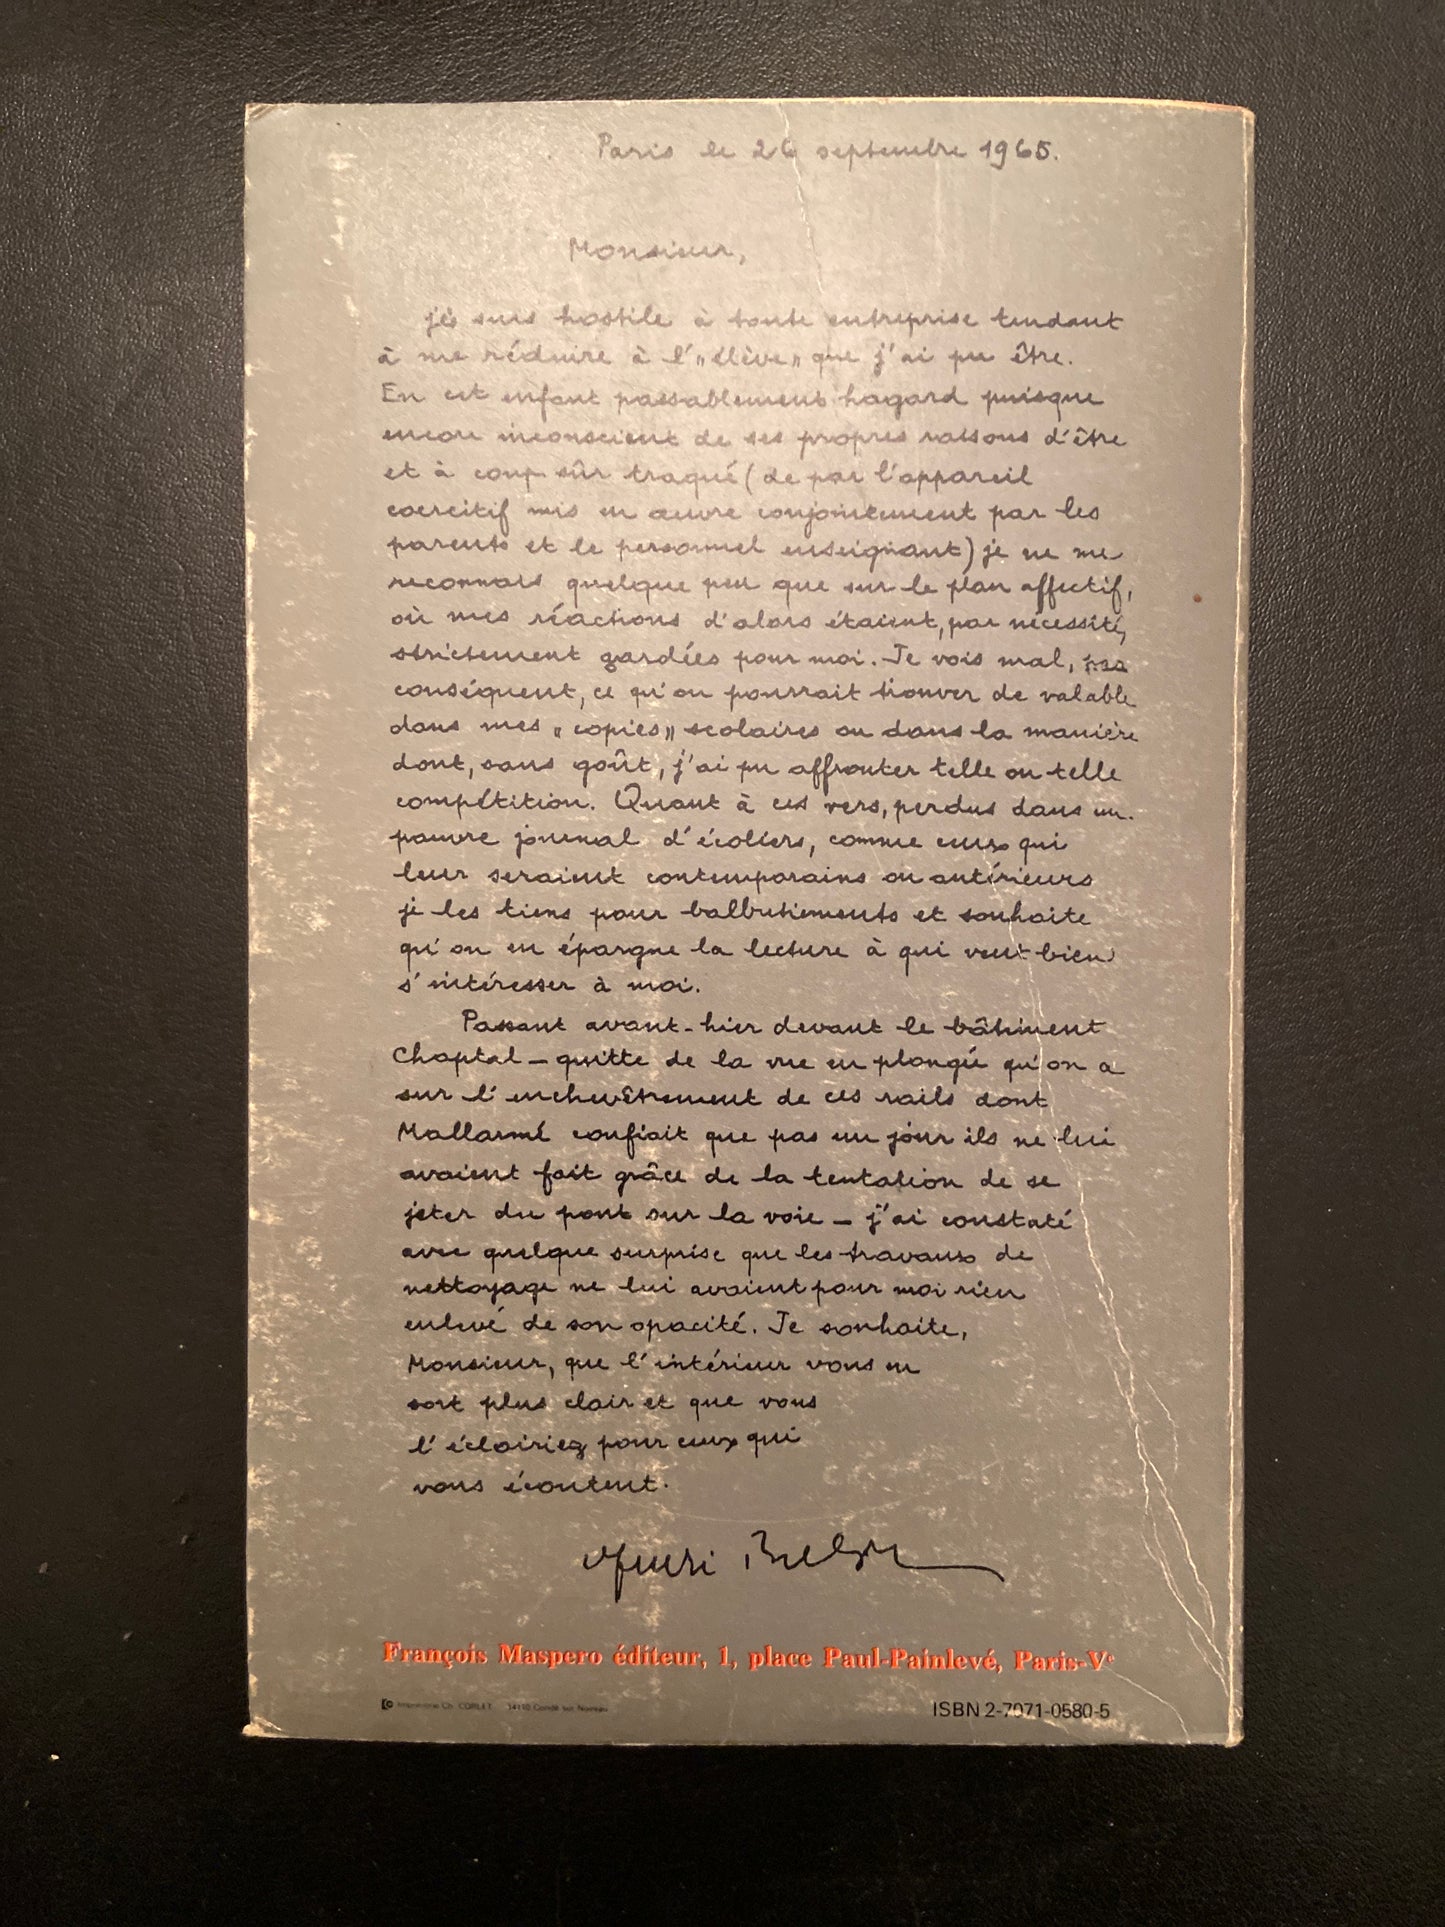 Paris le 26 septembre 1965.
Monsieur,
je suis hostile à toute entreprise tendant
à me réduire à l'"élève" que j'ai pu être.
En cet enfant passablement hagard puisque
encore inconscient de ses propres raisons d'être
et à coup sûr traqué (de par l'appareil
coercitif mis en œuvre conjointement par les
parents et le personnel enseignant) je ne me
reconnais quelque peu que sur le plan affectif,
où mes réactions d'alors étaient, par nécessité,
strictement gardées pour moi. Je vois mal, par
conséquent, ce qu'on pourrait trouver de valable
dans mes "copies" scolaires ou dans la manière
dont, sans goût, j'ai pu affronter telle ou telle
compétition. Quant à ces vers, perdus dans un
pauvre journal d'écoliers, comme ceux qui
leur seraient contemporains ou antérieurs
je les tiens pour balbutiements et souhaite
qu'on en épargne la lecture à qui veut bien
s'intéresser à moi.
Passant avant-hier devant le bâtiment
Chaptal – quitte de la vue en plongée qu'on a
sur l'enchevêtrement de ces rails dont
Mallarmé confiait que pas un jour ils ne lui
avaient fait grâce de la tentation de se
jeter du pont sur la voie – j'ai constaté
avec quelque surprise que les travaux de
nettoyage ne lui avaient pour moi rien
enlevé de son opacité. Je souhaite,
Monsieur, que l'intérieur vous en
soit plus clair et que vous
l'éclairiez pour ceux qui
vous écoutent.
Henri
François Maspero éditeur, 1, place Paul-Painlevé, Paris-Ve
Imprimerie Ch. CORLET 14110 Condé-sur-Noireau
ISBN 2-7071-0580-5